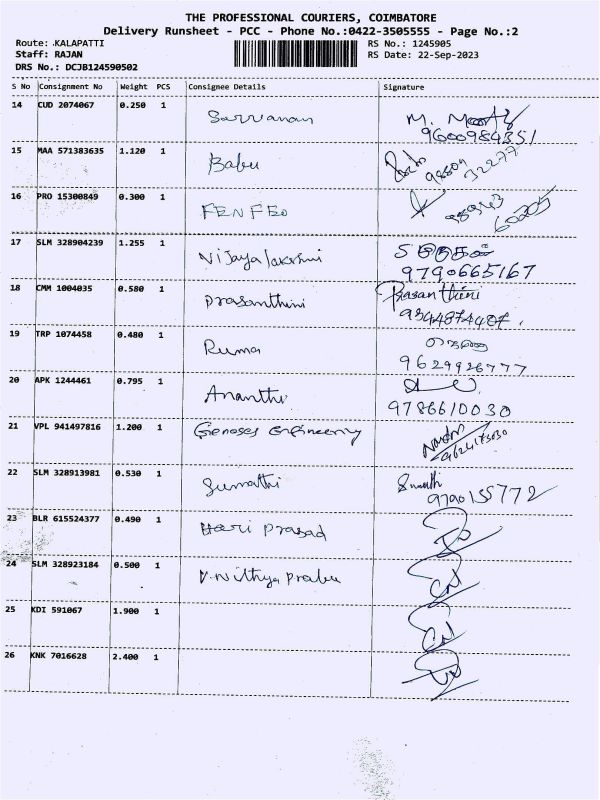 THE PROFESSIONAL COURIERS, COIMBATORE
Delivery Runsheet - PCC - Phone No.:0422-3505555 - Page No.:2
Route: KALAPATTI RS No.: 1245905
Staff: RAJAN RS Date: 22-Sep-2023
DRS No.: DCJB124590502
S No Consignment No Weight PCS Consignee Details Signature
14 CUD 2074067 0.250 1 Sarvanan M. Moorthy
9600984351
15 MAA 571383635 1.120 1 Babu
32277
16 PRO 15300849 0.300 1 FENFEO
17 SLM 328904239 1.255 1 Vijaya lakshmi
9790665167
18 CMM 1004035 0.580 1 Prasanthini Prasanthini
9344874487.
19 TRP 1074458 0.480 1 Ruma
9629926777
20 APK 1244461 0.795 1 Ananthi
9786610030
21 VPL 941497816 1.200 1 Genoses Engineering
9624175030
22 SLM 328913981 0.530 1 Sumathi Sumathi
9790155772
23 BLR 615524377 0.490 1 Hari Prasad
24 SLM 328923184 0.500 1 V.Nithya Prabu
25 KDI 591067 1.900 1
26 KNK 7016628 2.400 1